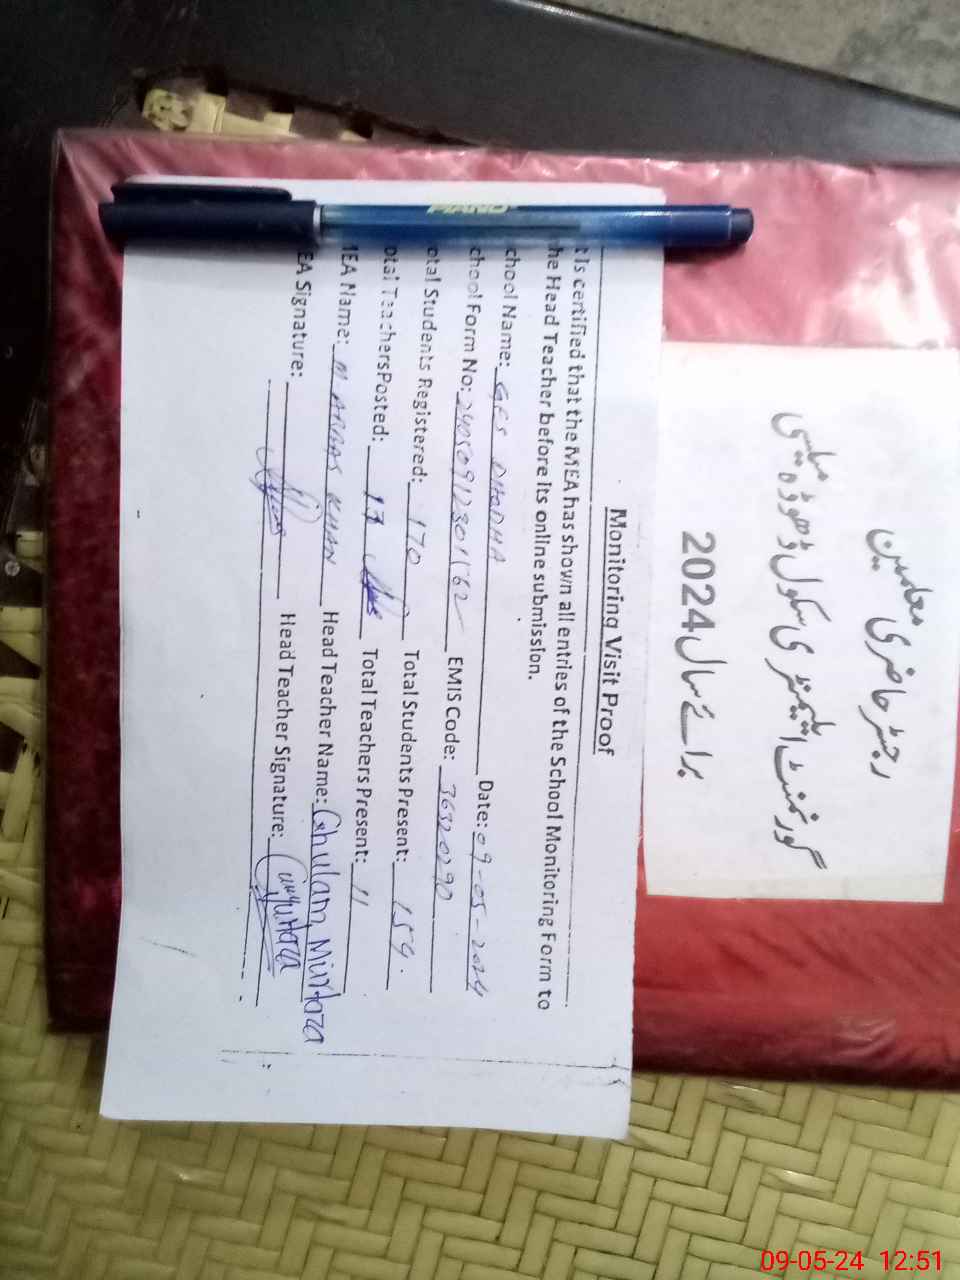 PIANO
Monitoring Visit Proof
t Is certified that the MEA has shown all entries of the School Monitoring Form to
he Head Teacher before its online submission.
chool Name: GES DHODHA Date: 09-05-2024
chool Form No: EMIS Code: 36320290
otal Students Registered: 170 Total Students Present: 159.
otal TeachersPosted: 13 Total Teachers Present: 11
MEA Name: M ABBAS KHAN Head Teacher Name: Ghulam Murtaza
EA Signature: Head Teacher Signature:
رجسٹر حاضری معلمین
گورنمنٹ ایلیمنٹری سکول ڈھوڈہ میلسی
برائے سال 2024
09-05-24 12:51